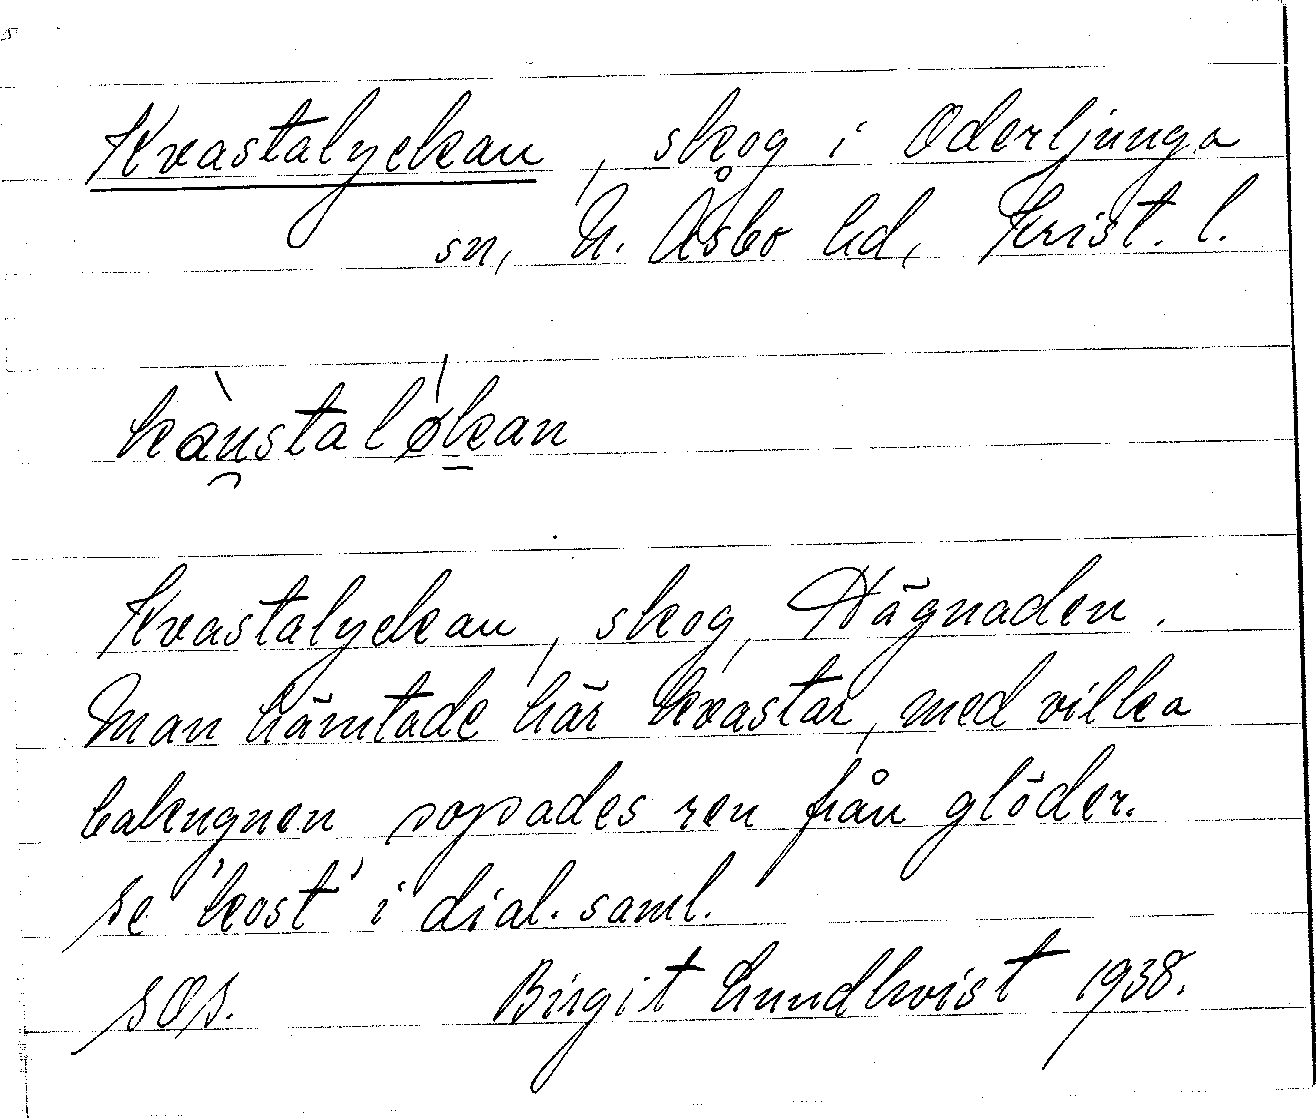 Kvastalyckan, skog i Oderljunga
sn, N. Åsbo hd, Krist. l.
kàu̯staló̱kan
Kvastalyckan, skog, Hägnaden.
Man hämtade här kvastar, med vilka
bakugnen sopades ren från glöder.
Se 'kost' i dial. saml.
SOS. Birgit Lundkvist 1938.